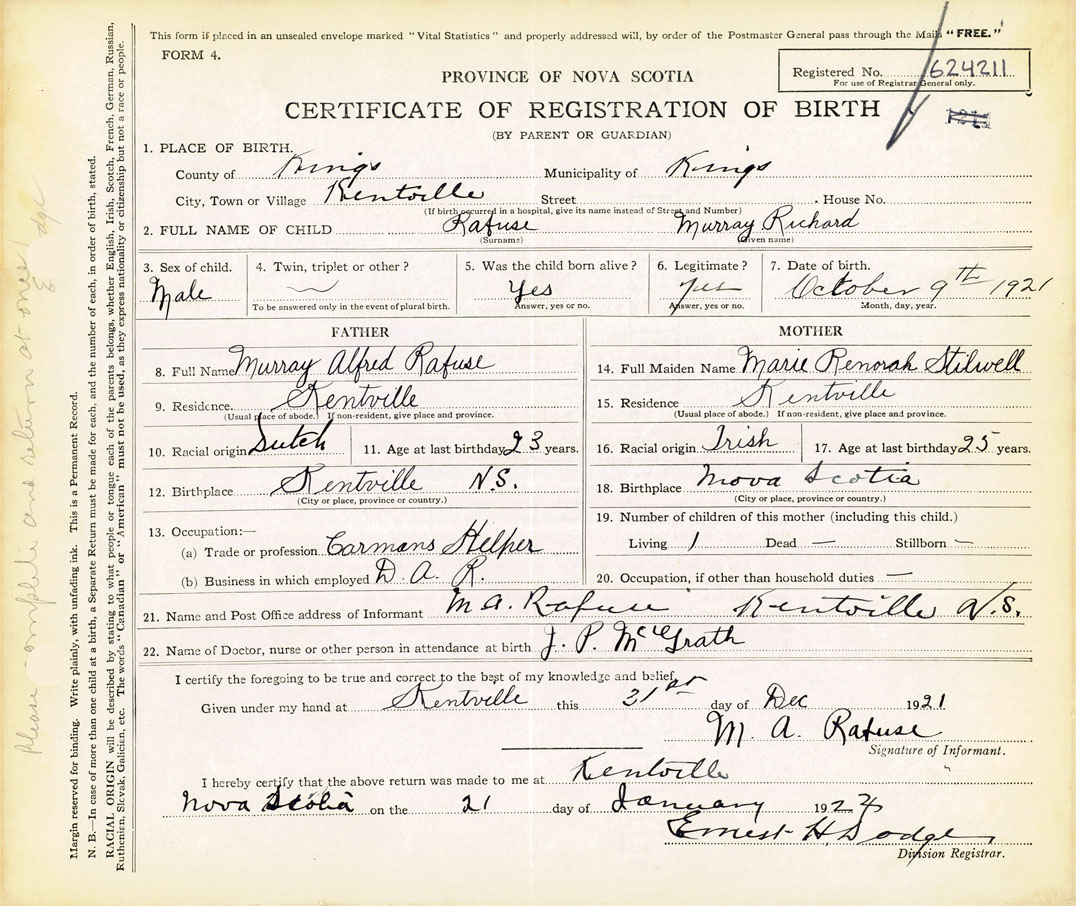 This form if placed in an unsealed envelope marked "Vital Statistics" and properly addressed will, by order of the Postmaster General pass through the Mails "FREE."
FORM 4.
Registered No. 624211
For use of Registrar General only.
PROVINCE OF NOVA SCOTIA
CERTIFICATE OF REGISTRATION OF BIRTH
(BY PARENT OR GUARDIAN)
1. PLACE OF BIRTH.
County of Kings Municipality of Kings
City, Town or Village Kentville Street House No.
(If birth occurred in a hospital, give its name instead of Street and Number)
2. FULL NAME OF CHILD Rafuse Murray Richard
(Surname) (Given name)
3. Sex of child. 4. Twin, triplet or other? 5. Was the child born alive? 6. Legitimate? 7. Date of birth.
Male Yes Yes October 9th 1921
To be answered only in the event of plural birth. Answer, yes or no. Answer, yes or no. Month, day, year.
FATHER
8. Full Name Murray Alfred Rafuse
9. Residence. Kentville
(Usual place of abode.) If non-resident, give place and province.
10. Racial origin Dutch 11. Age at last birthday 23 years.
12. Birthplace Kentville N.S.
(City or place, province or country.)
13. Occupation:—
(a) Trade or profession Carmans Helper
(b) Business in which employed D. A. R.
MOTHER
14. Full Maiden Name Marie Renorah Stilwell
15. Residence Kentville
(Usual place of abode.) If non-resident, give place and province.
16. Racial origin Irish 17. Age at last birthday 25 years.
18. Birthplace Nova Scotia
(City or place, province or country.)
19. Number of children of this mother (including this child.)
Living 1 Dead — Stillborn —
20. Occupation, if other than household duties —
21. Name and Post Office address of Informant M A. Rafuse Kentville N.S.
22. Name of Doctor, nurse or other person in attendance at birth J. P. McGrath
I certify the foregoing to be true and correct to the best of my knowledge and belief.
Given under my hand at Kentville this 31st day of Dec 1921
M. A. Rafuse
Signature of Informant.
I hereby certify that the above return was made to me at Kentville
Nova Scotia on the 21 day of January 1922
Ernest H. Dodge
Division Registrar.
Margin reserved for binding. Write plainly, with unfading ink. This is a Permanent Record.
N. B.—In case of more than one child at a birth, a Separate Return must be made for each, and the number of each, in order of birth, stated.
RACIAL ORIGIN will be described by stating to what people or tongue each of the parents belongs, whether English, Irish, Scotch, French, German, Russian,
Ruthenien, Slovak, Galician, etc. The words "Canadian" or "American" must not be used, as they express nationality or citizenship but not a race or people.
Please complete and return at once!